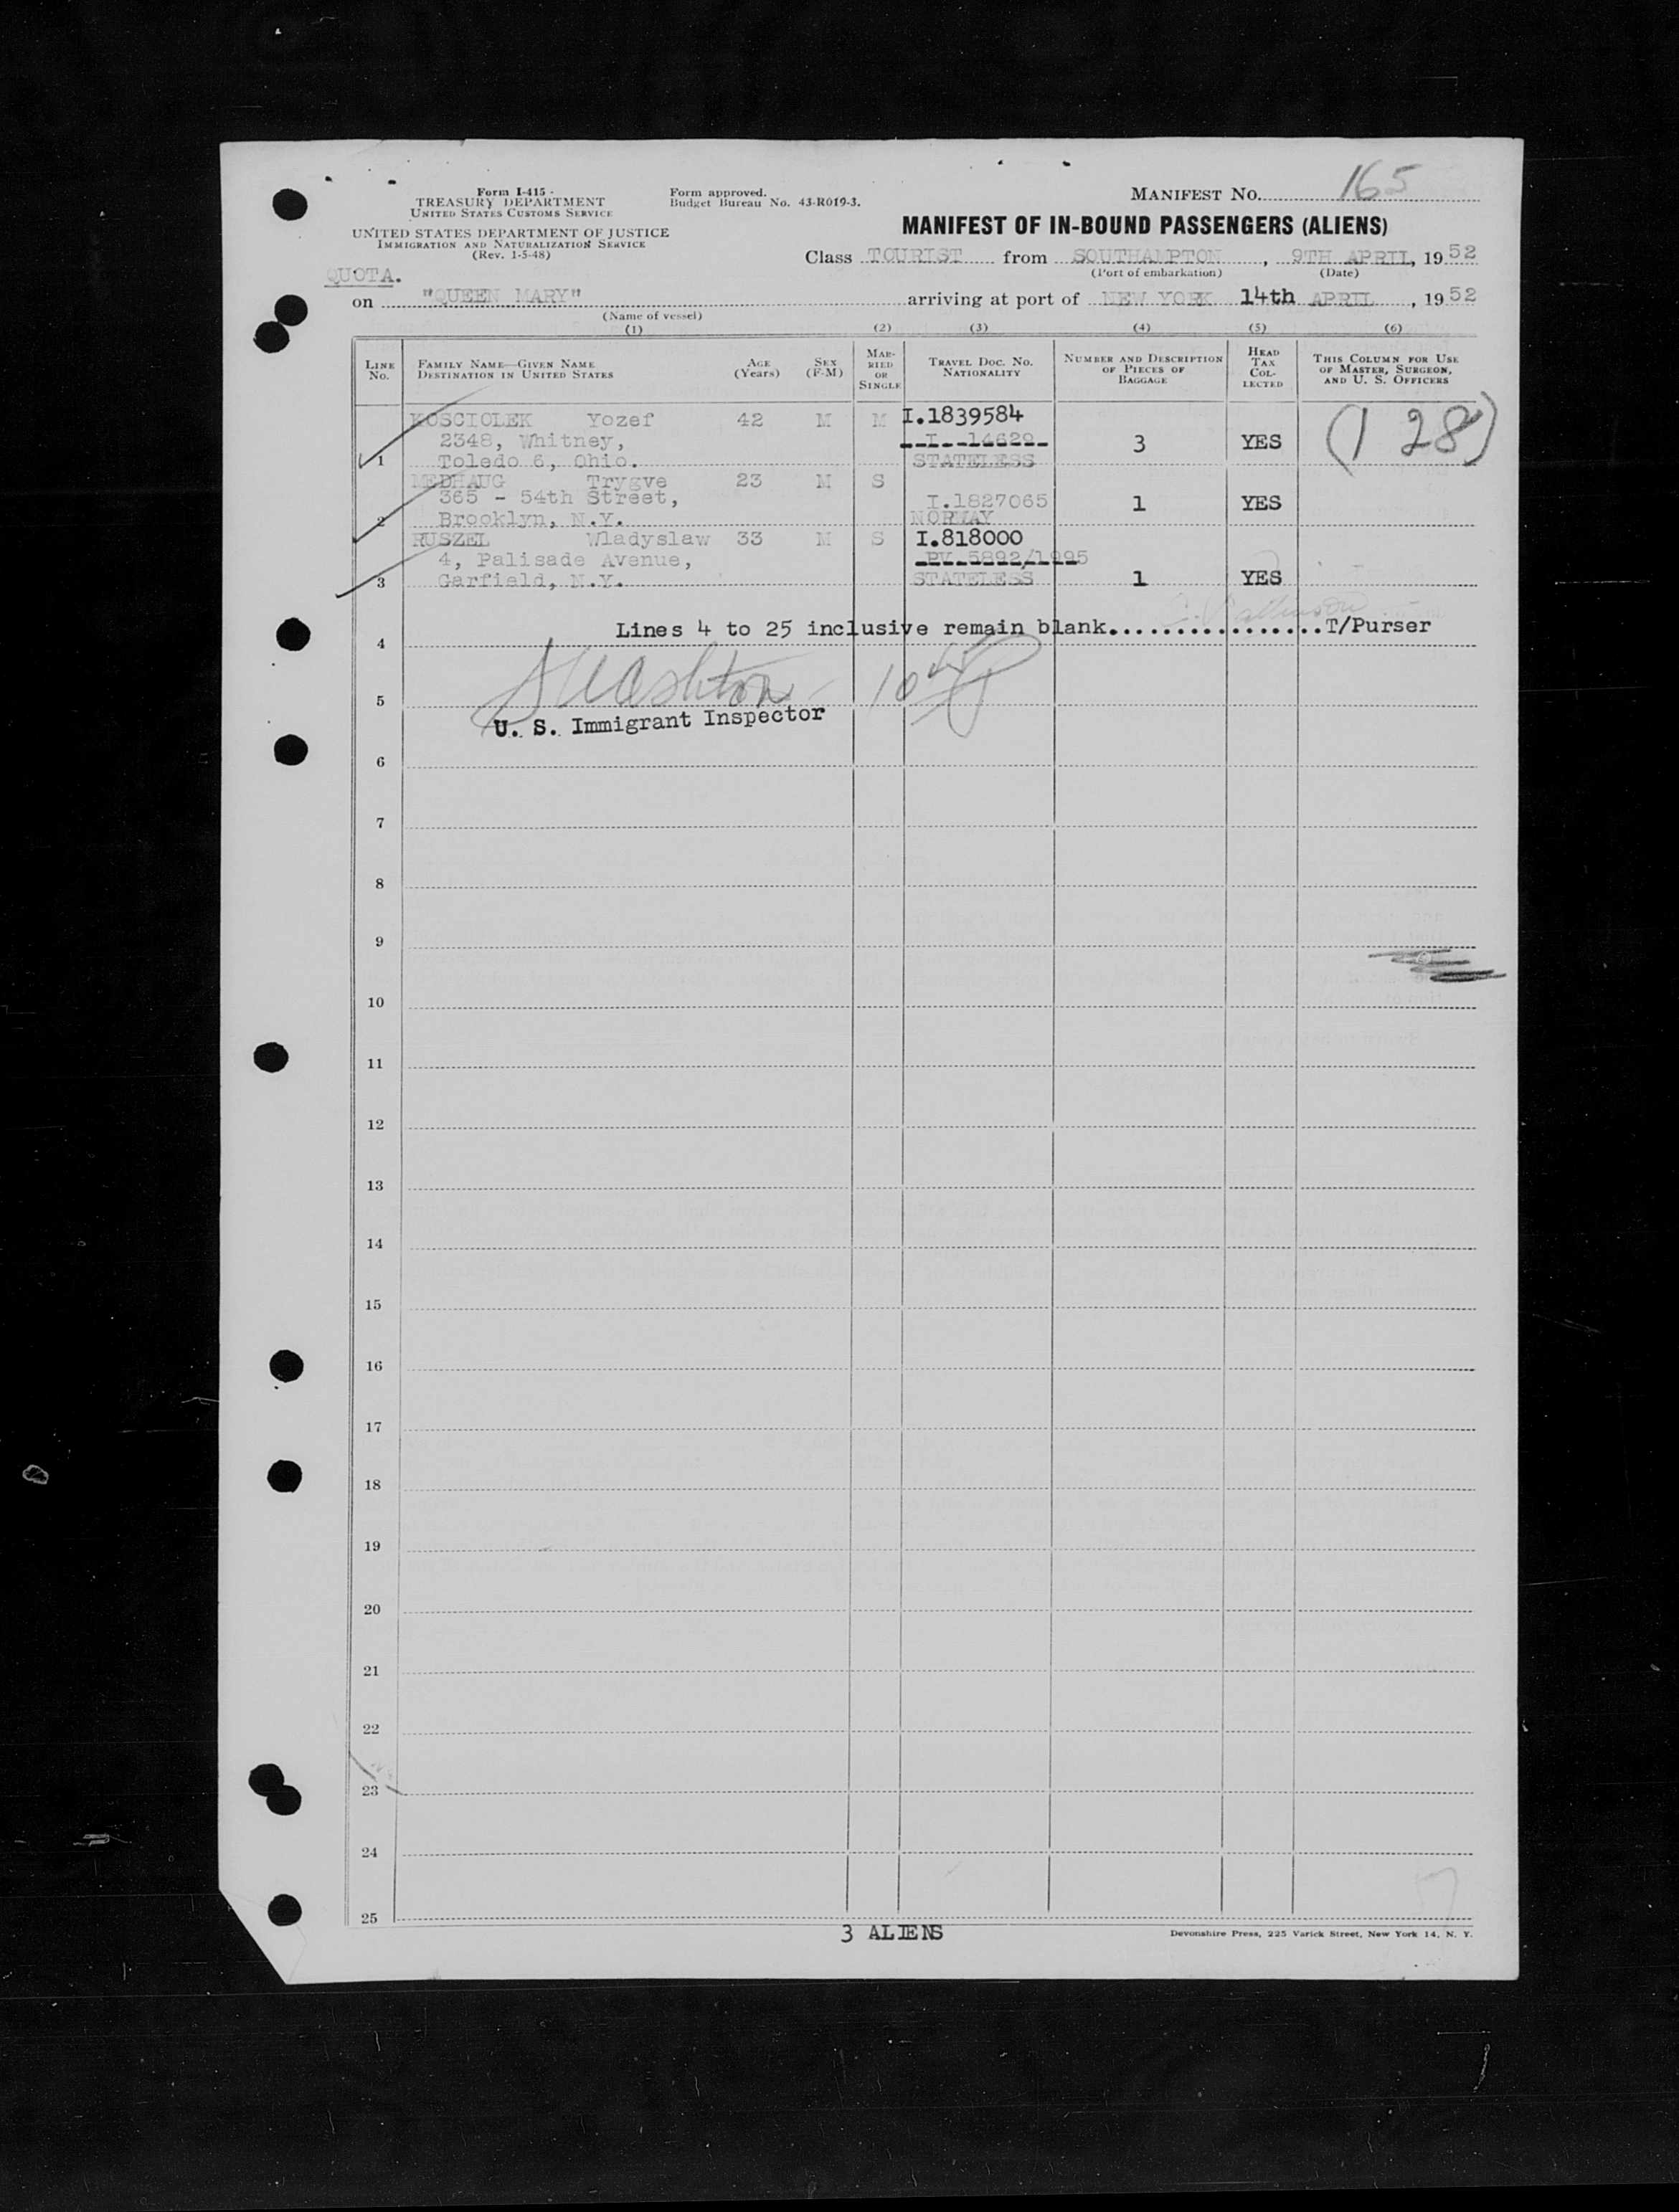 Form I-415 -
TREASURY DEPARTMENT
UNITED STATES CUSTOMS SERVICE
UNITED STATES DEPARTMENT OF JUSTICE
IMMIGRATION AND NATURALIZATION SERVICE
(Rev. 1-5-48)
Form approved.
Budget Bureau No. 43-R019-3.
MANIFEST NO. 165
MANIFEST OF IN-BOUND PASSENGERS (ALIENS)
Class TOURIST from SOUTHAMPTON, 9TH APRIL, 1952
(Port of embarkation) (Date)
QUOTA.
on "QUEEN MARY" arriving at port of NEW YORK 14th APRIL, 1952
(Name of vessel)
(1) (2) (3) (4) (5) (6)
LINE NO. FAMILY NAME—GIVEN NAME DESTINATION IN UNITED STATES AGE (Years) SEX (F-M) MARRIED OR SINGLE TRAVEL DOC. NO. NATIONALITY NUMBER AND DESCRIPTION OF PIECES OF BAGGAGE HEAD TAX COLLECTED THIS COLUMN FOR USE OF MASTER, SURGEON, AND U. S. OFFICERS
KOSCIOLEK Yozef 42 M M I.1839584
2348, Whitney, I 14629 3 YES (1 28)
1 Toledo 6, Ohio. STATELESS
MEDHAUG Trygve 23 M S
365 - 54th Street, I.1827065 1 YES
2 Brooklyn, N.Y. NORWAY
RUSZEL Wladyslaw 33 M S I.818000
4, Palisade Avenue, PV 5892/1995
3 Garfield, N.Y. STATELESS 1 YES
Lines 4 to 25 inclusive remain blank................T/Purser
4
5
U. S. Immigrant Inspector
6
7
8
9
10
11
12
13
14
15
16
17
18
19
20
21
22
23
24
25
3 ALIENS
Devonshire Press, 225 Varick Street, New York 14, N. Y.